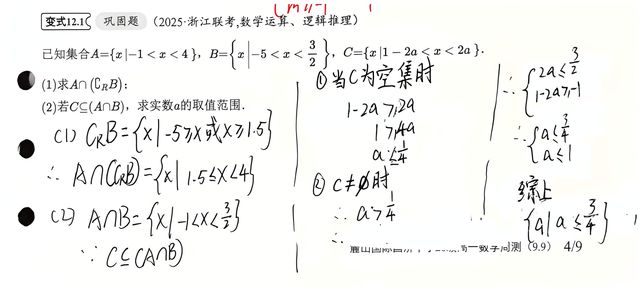 变式12.1 巩固题 (2025·浙江联考,数学运算、逻辑推理)
已知集合A={x|-1<x<4}, B={x|-5<x<3/2}, C={x|1-2a<x<2a}.
(1)求A∩(∁RB);
(2)若C⊆(A∩B), 求实数a的取值范围.
(1) CRB={x|-5≥x或x≥1.5}
∴ A∩(CRB)={x|1.5≤x<4}
(2) A∩B={x|-1<x<3/2}
∵ C⊆(A∩B)
①当C为空集时
1-2a≥2a
1≥4a
a≤1/4
②C≠∅时
∴ a>1/4
∴
∴ {2a≤3/2
1-2a≥-1
∴ {a≤3/4
a≤1
综上
{a|a≤3/4}
高一数学周测 (9.9) 4/9